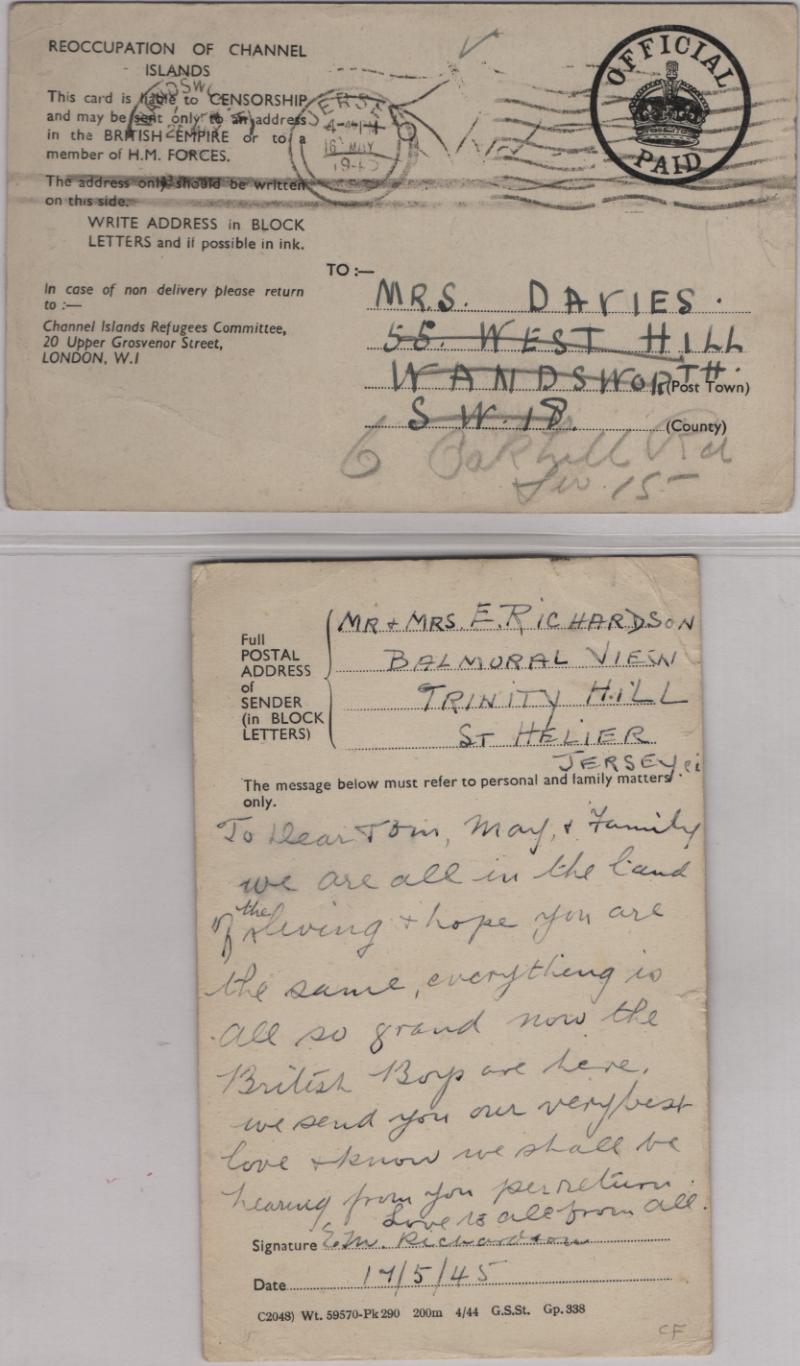 REOCCUPATION OF CHANNEL
ISLANDS
This card is liable to CENSORSHIP
and may be sent only to an address
in the BRITISH EMPIRE or to a
member of H.M. FORCES.
The address only should be written
on this side.
WRITE ADDRESS in BLOCK
LETTERS and if possible in ink.
In case of non delivery please return
to :—
Channel Islands Refugees Committee,
20 Upper Grosvenor Street,
LONDON, W.1
JERSEY
16 MAY
OFFICIAL
PAID
TO :—
MRS. DAVIES.
55. WEST HILL
WANDSWORTH. (Post Town)
S.W.18. (County)
6 Oakhill Rd
SW. 15
Full
POSTAL
ADDRESS
of
SENDER
(in BLOCK
LETTERS)
MR + MRS. E. RICHARDSON
BALMORAL VIEW
TRINITY HILL
ST HELIER
JERSEY ci
The message below must refer to personal and family matters
only.
To Dear Tom, May, & Family
we are all in the land
of the living + hope you are
the same, everything is
all so grand now the
British Boys are here.
we send you our very best
love + know we shall be
hearing from you per return.
Love to all from all.
Signature E.M. Richardson
Date 17/5/45
C2048) Wt. 59570-Pk 290 200m 4/44 G.S.St. Gp. 338
CF